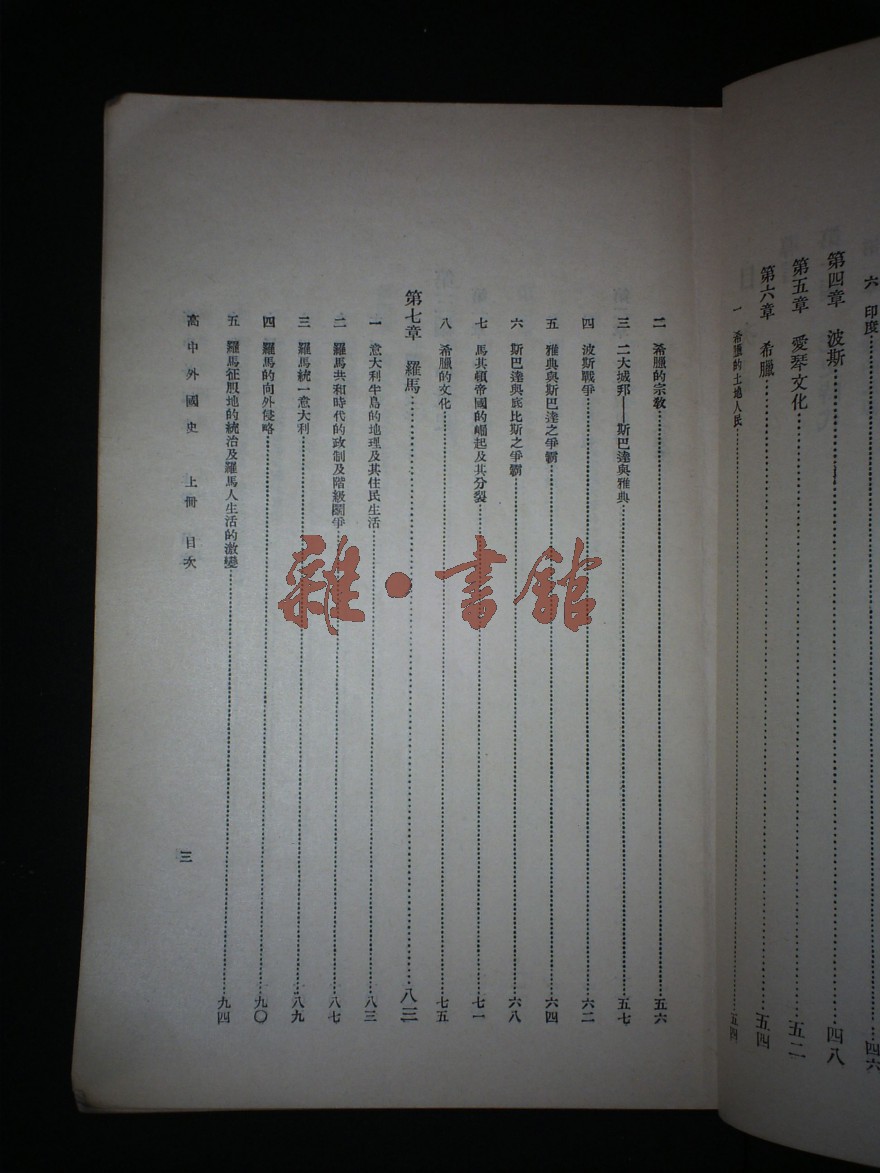 六 印度……四六
第四章 波斯……四八
第五章 愛琴文化……五二
第六章 希臘……五四
一 希臘的土地人民……五四
二 希臘的宗教……五六
三 二大城邦——斯巴達與雅典……五七
四 波斯戰爭……六二
五 雅典與斯巴達之爭霸……六四
六 斯巴達與底比斯之爭霸……六八
七 馬其頓帝國的崛起及其分裂……七一
八 希臘的文化……七五
第七章 羅馬……八三
一 意大利半島的地理及其住民生活……八三
二 羅馬共和時代的政制及階級鬭爭……八七
三 羅馬統一意大利……八九
四 羅馬的向外侵略……九〇
五 羅馬征服地的統治及羅馬人生活的激變……九四
高中外國史 上冊 目次
三
雜·書館